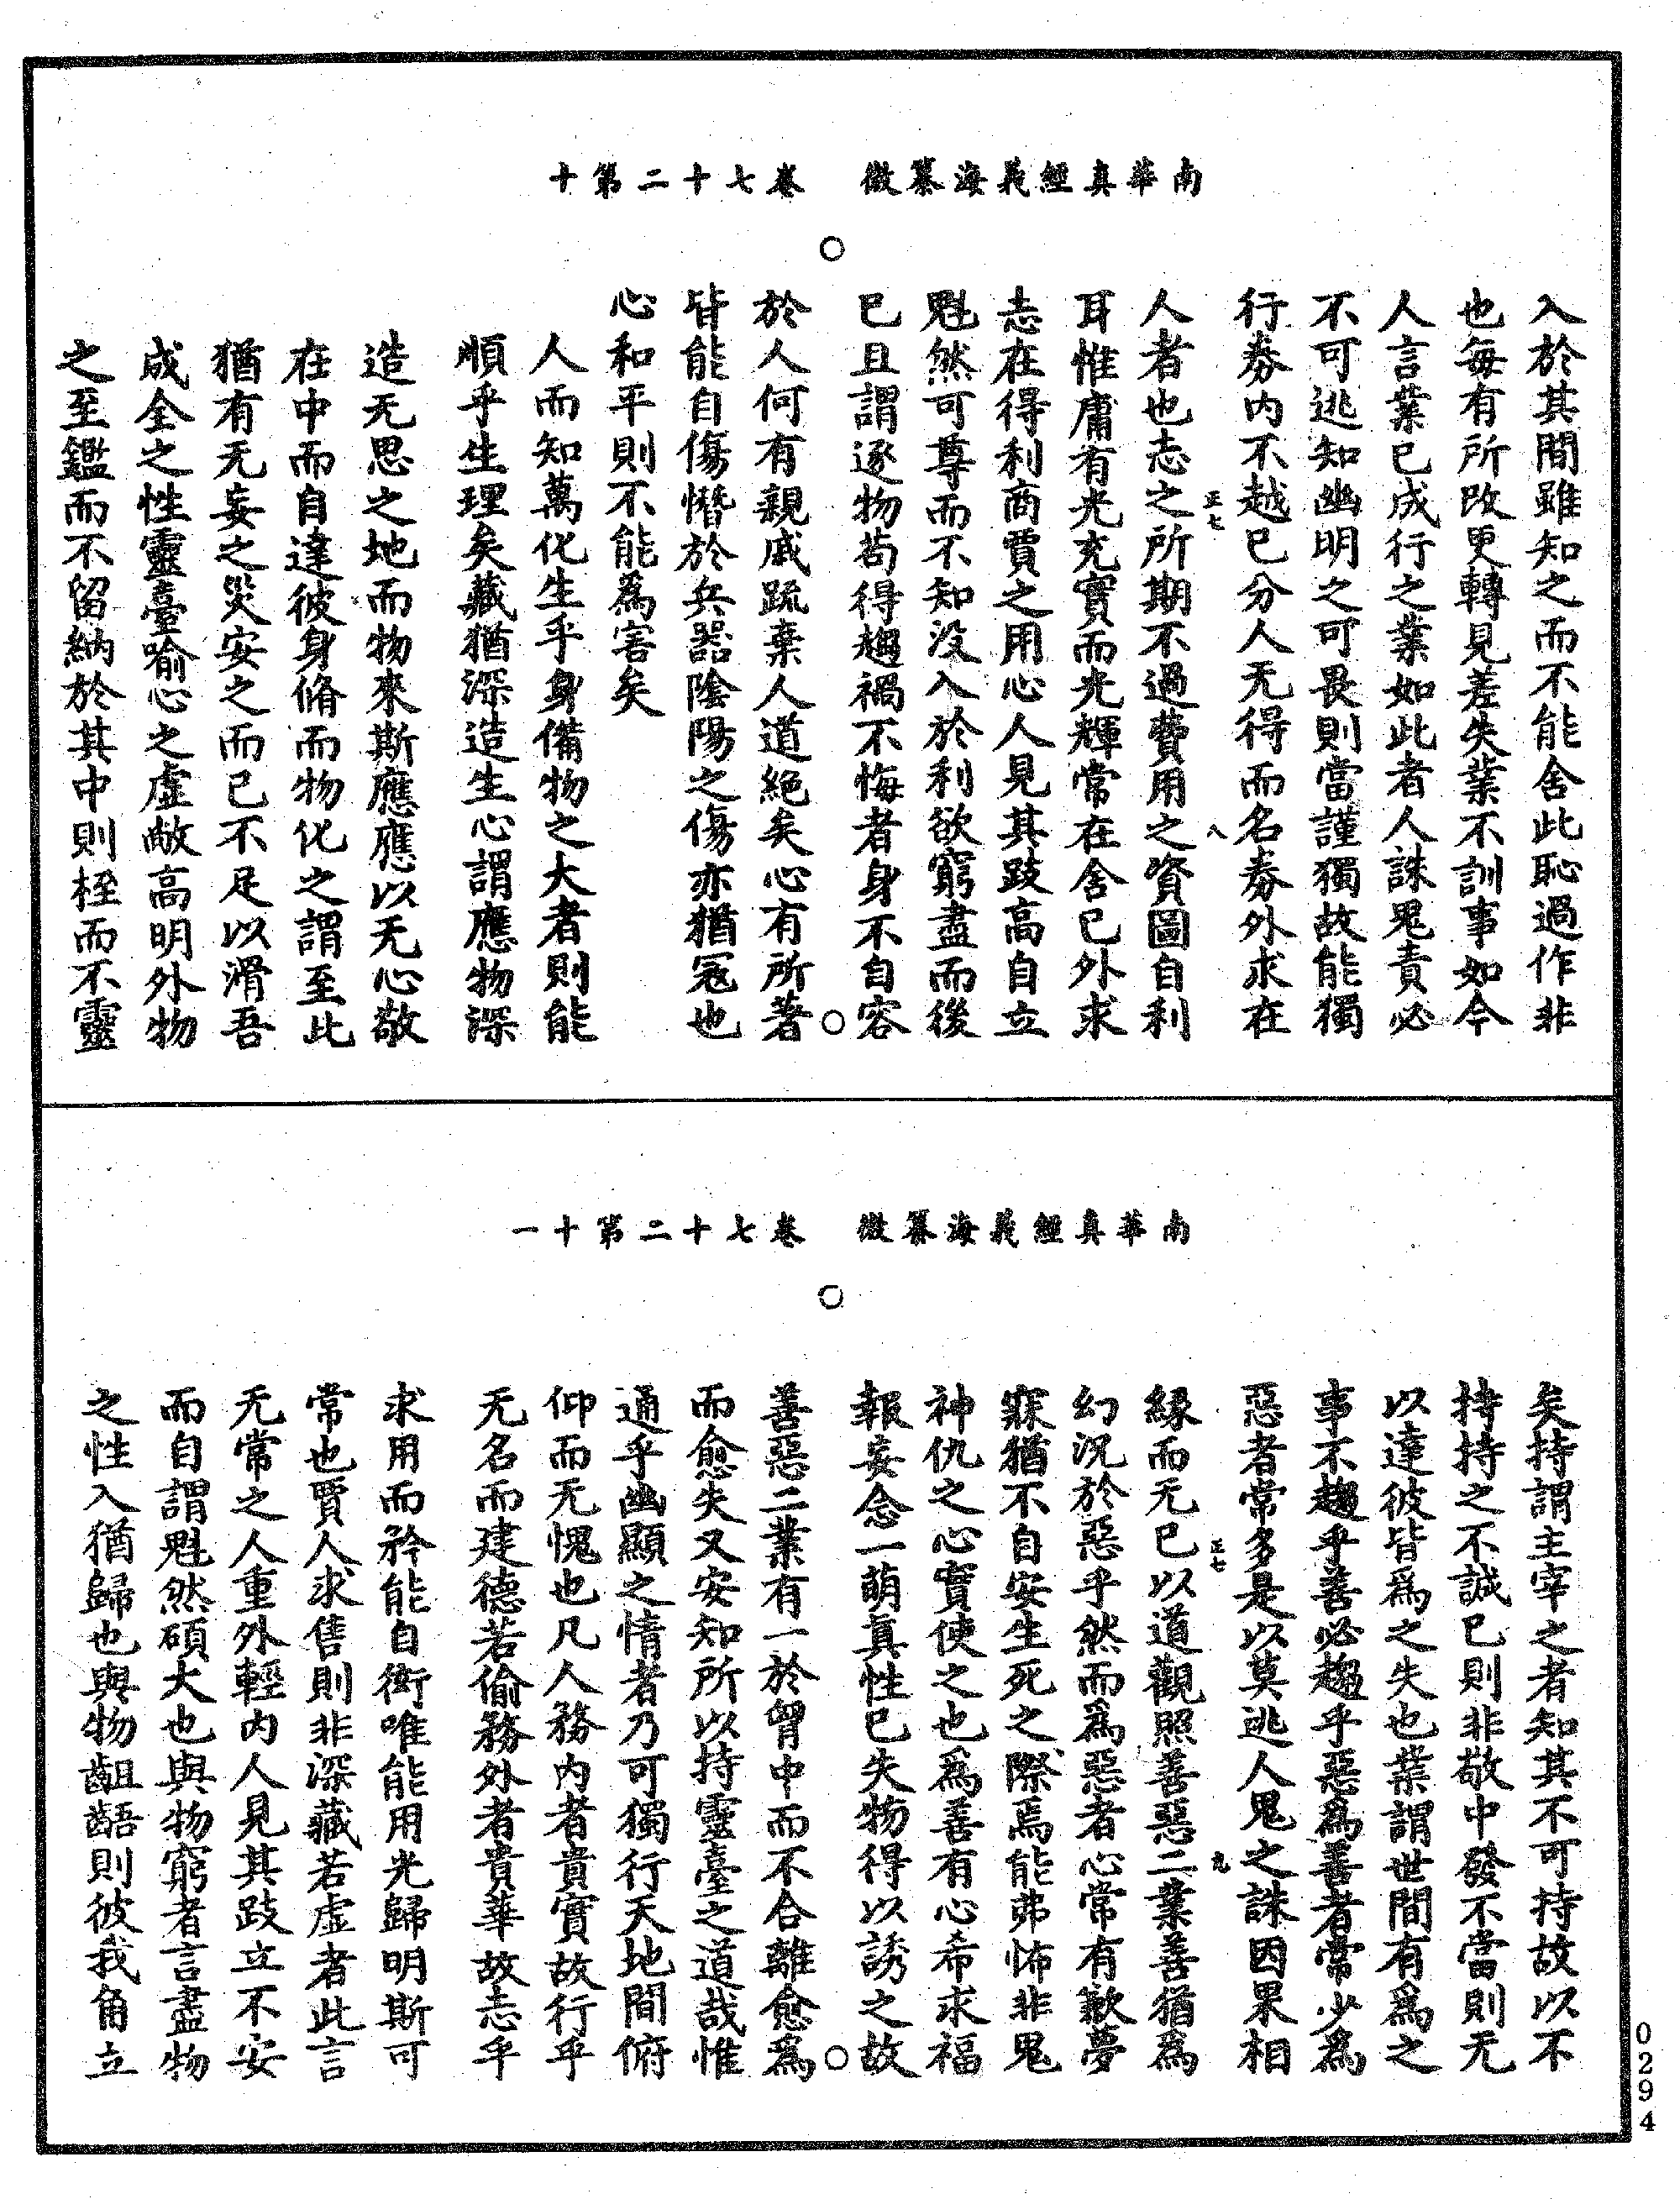 南華真經義海纂微　卷七十二第十
入於其間雖知之而不能舍此恥過作非
也每有所改更轉見差失業不訓事如今
人言業已成行之業如此者人誅鬼責必
不可逃知幽明之可畏則當謹獨故能獨
行券内不越已分人无得而名券外求在
人者也志之所期不過費用之資圖自利
耳惟庸有光充實而光輝常在舍已外求
志在得利商賈之用心人見其跂高自立
魁然可尊而不知没入於利欲窮盡而後
已且謂逐物苟得趨禍不悔者身不自容
於人何有親戚疏棄人道絕矣心有所著
皆能自傷憯於兵器陰陽之傷亦猶冦也
心和平則不能爲害矣
人而知萬化生乎身備物之大者則能
順乎生理矣藏猶深造生心謂應物深
造无思之地而物來斯應應以无心敬
在中而自達彼身脩而物化之謂至此
猶有无妄之災安之而已不足以滑吾
成全之性靈臺喻心之虛敞高明外物
之至鑑而不留納於其中則桎而不靈
正七
八
南華真經義海纂微　卷七十二第十一
矣持謂主宰之者知其不可持故以不
持持之不誠已則非敬中發不當則无
以達彼皆爲之失也業謂世間有爲之
事不趨乎善必趨乎惡爲善者常少爲
惡者常多是以莫逃人鬼之誅因果相
緣而无已以道觀照善惡二業善猶爲
幻況於惡乎然而爲惡者心常有歉夢
寐猶不自安生死之際焉能弗怖非鬼
神仇之心實使之也爲善有心希求福
報妄念一萌真性已失物得以誘之故
善惡二業有一於胷中而不合離愈爲
而愈失又安知所以持靈臺之道哉惟
通乎幽顯之情者乃可獨行天地間俯
仰而无愧也凡人務内者貴實故行乎
无名而建德若偷務外者貴華故志乎
求用而矜能自衒唯能用光歸明斯可
常也賈人求售則非深藏若虛者此言
无常之人重外輕内人見其跂立不安
而自謂魁然碩大也與物窮者言盡物
之性入猶歸也與物齟齬則彼我角立
正七
九
0294